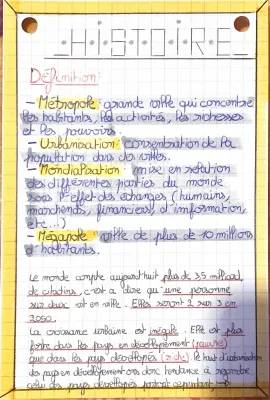 HISTOIRE
Définition:
- Métropole: grande ville qui concentre
les habitants, les activités, les richesses
et les pouvoirs.
- Urbanisation: concentration de la
population dans les villes.
- Mondialisation: mise en relation
des différentes parties du monde
sous l'effet des échanges (humains,
marchands, financiers, d'information,
etc...)
- Mégapole: ville de plus de 10 millions
d'habitants.
Le monde compte aujourd'hui plus de 3,5 milliard
de citadins, c'est à dire qu'une personne
sur deux vit en ville. Elles seront 2 sur 3 en
2050.
La croissance urbaine est inégale. Elle est plus
forte dans les pays en développement (pauvre)
que dans les pays développés (riche)
des pays en développement ont donc tendance à
celui des pays développés